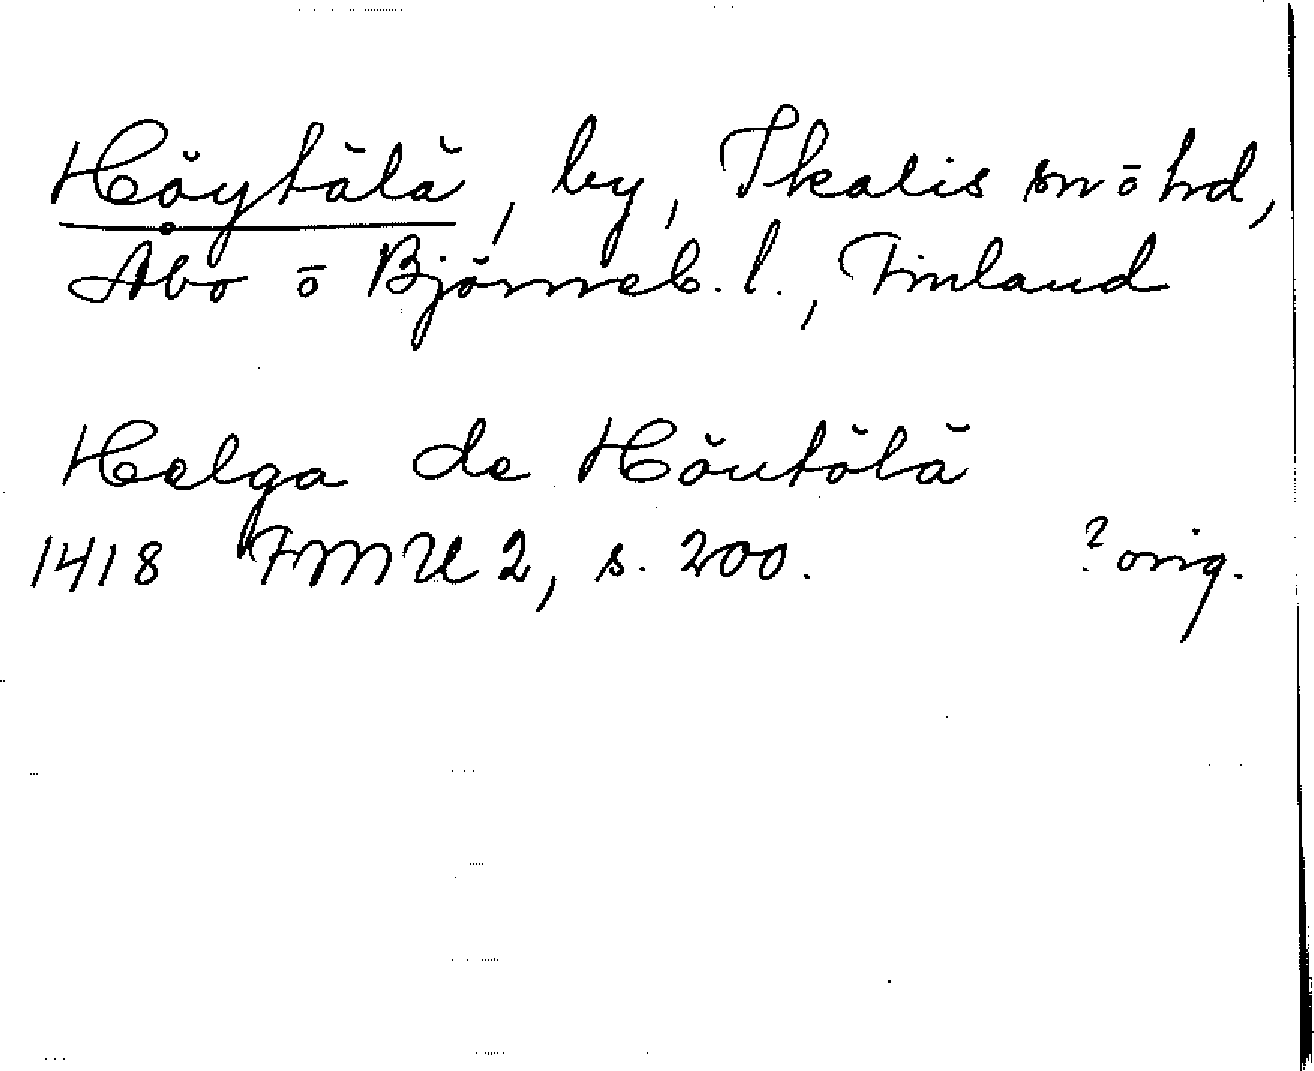 Höytälä, by, Ikalis sn ō hd,
Åbo ō Björneb. l., Finland
Helga de Höutölä
1418 FMU 2, s. 200. ? orig.